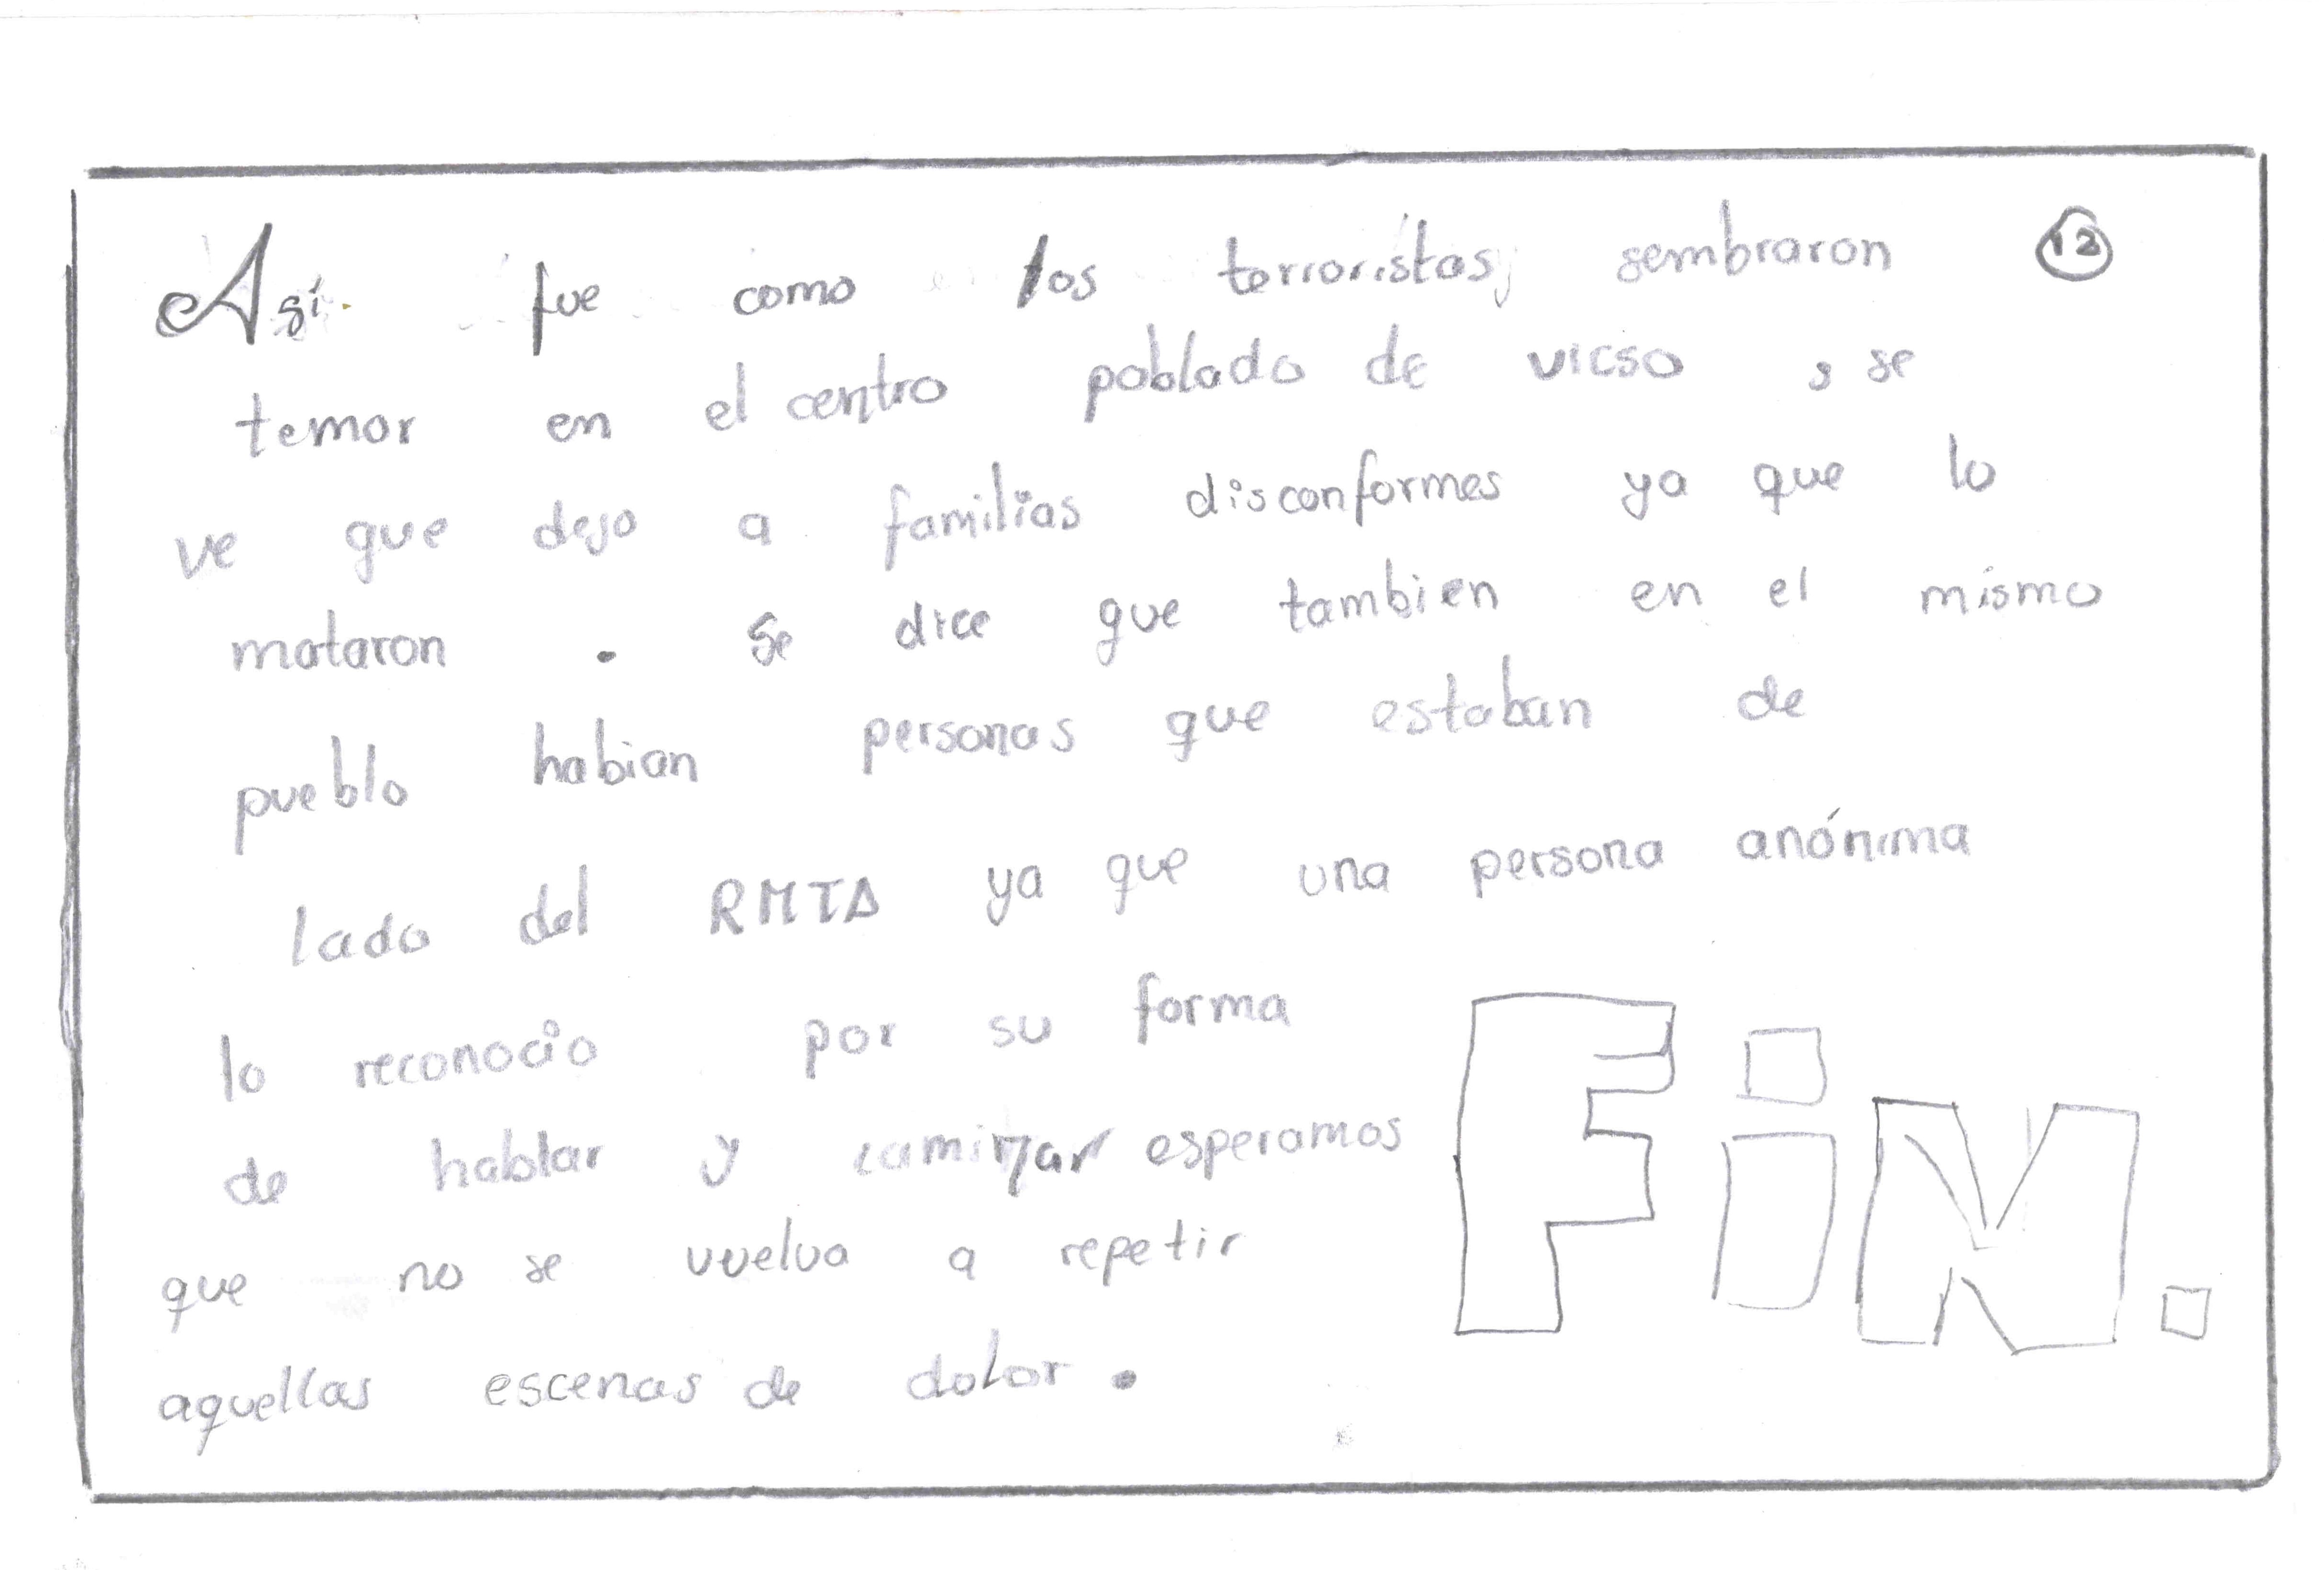 Así fue como los terroristas, sembraron 12
temor en el centro poblado de vicso, se
ve que dejo a familias disconformes ya que lo
mataron. Se dice que tambien en el mismo
pueblo habian personas que estaban de
lado del RMTA ya que una persona anónima
lo reconocio por su forma
de hablar y caminar esperamos
que no se vuelva a repetir
aquellas escenas de dolor.
FiN.